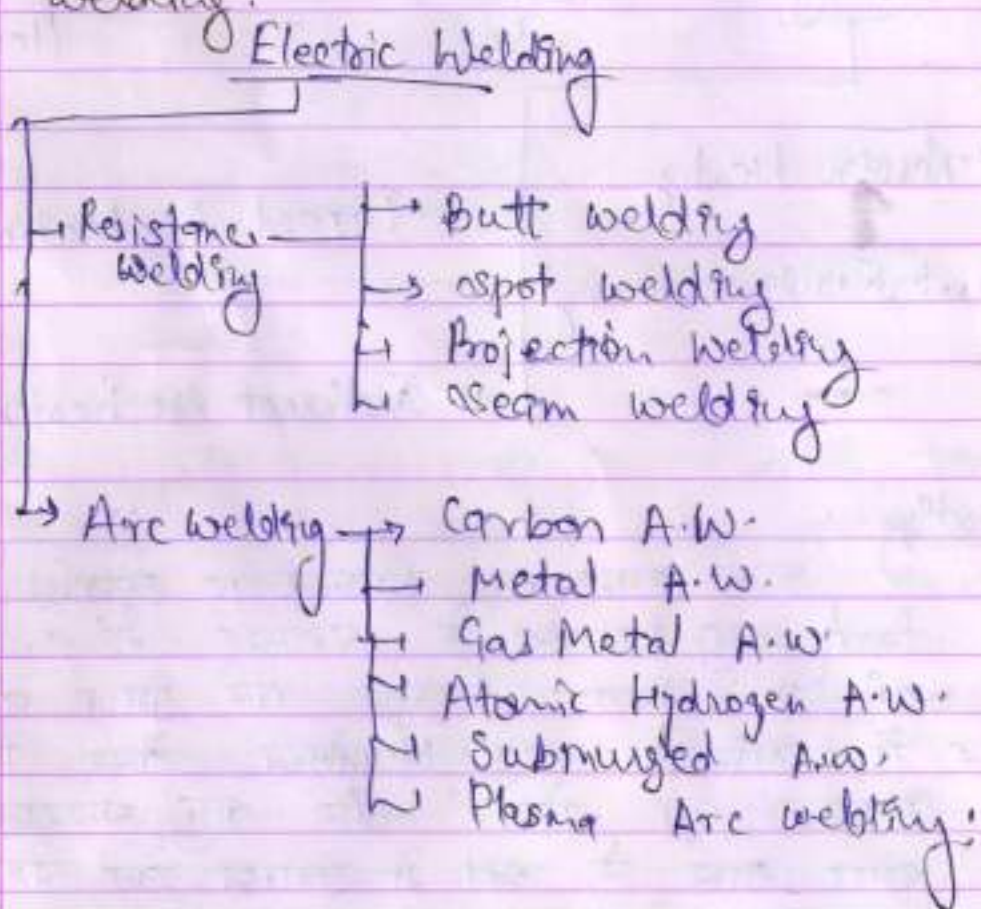 welding.
Electric Welding
Resistance
welding
Butt welding
spot welding
Projection Welding
Seam welding
Arc welding
Carbon A.W.
Metal A.W.
Gas Metal A.W.
Atomic Hydrogen A.W.
Submurged A.W.
Plasma Arc welding.